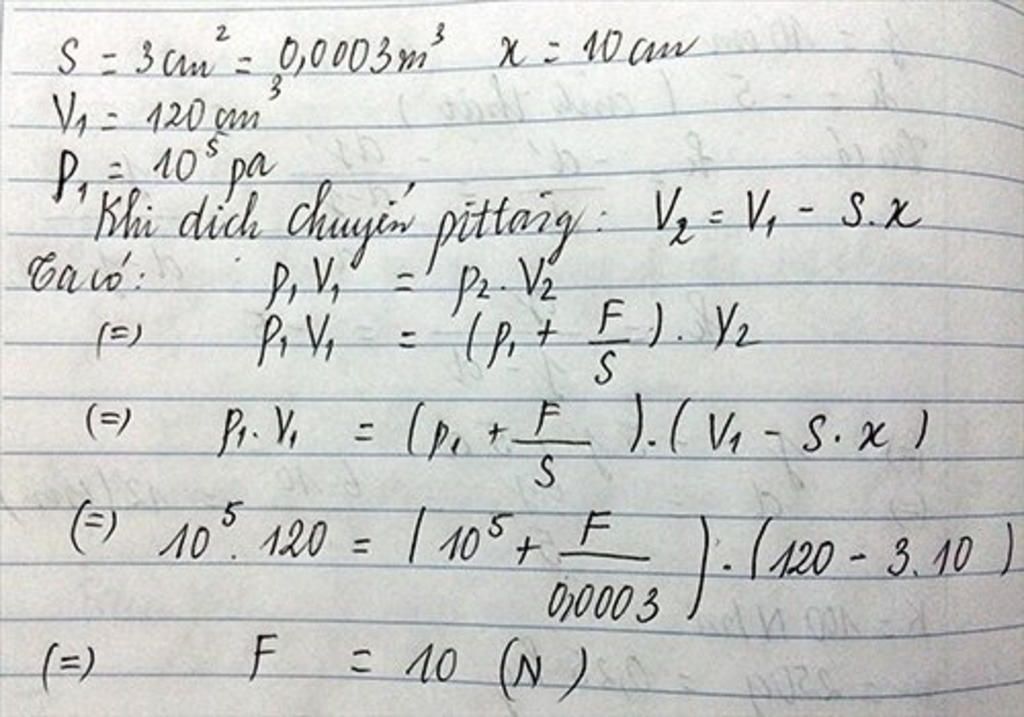 S = 3 cm² = 0,0003 m³ x = 10 cm
V₁ = 120 cm³
P₁ = 10⁵ pa
Khi dịch chuyển pittông: V₂ = V₁ - S.x
Ta có: p₁V₁ = p₂.V₂
(=) p₁V₁ = (p₁ + F/S).V₂
(=) p₁.V₁ = (p₁ + F/S).(V₁ - S.x)
(=) 10⁵.120 = (10⁵ + F/0,0003).(120 - 3.10)
(=) F = 10 (N)